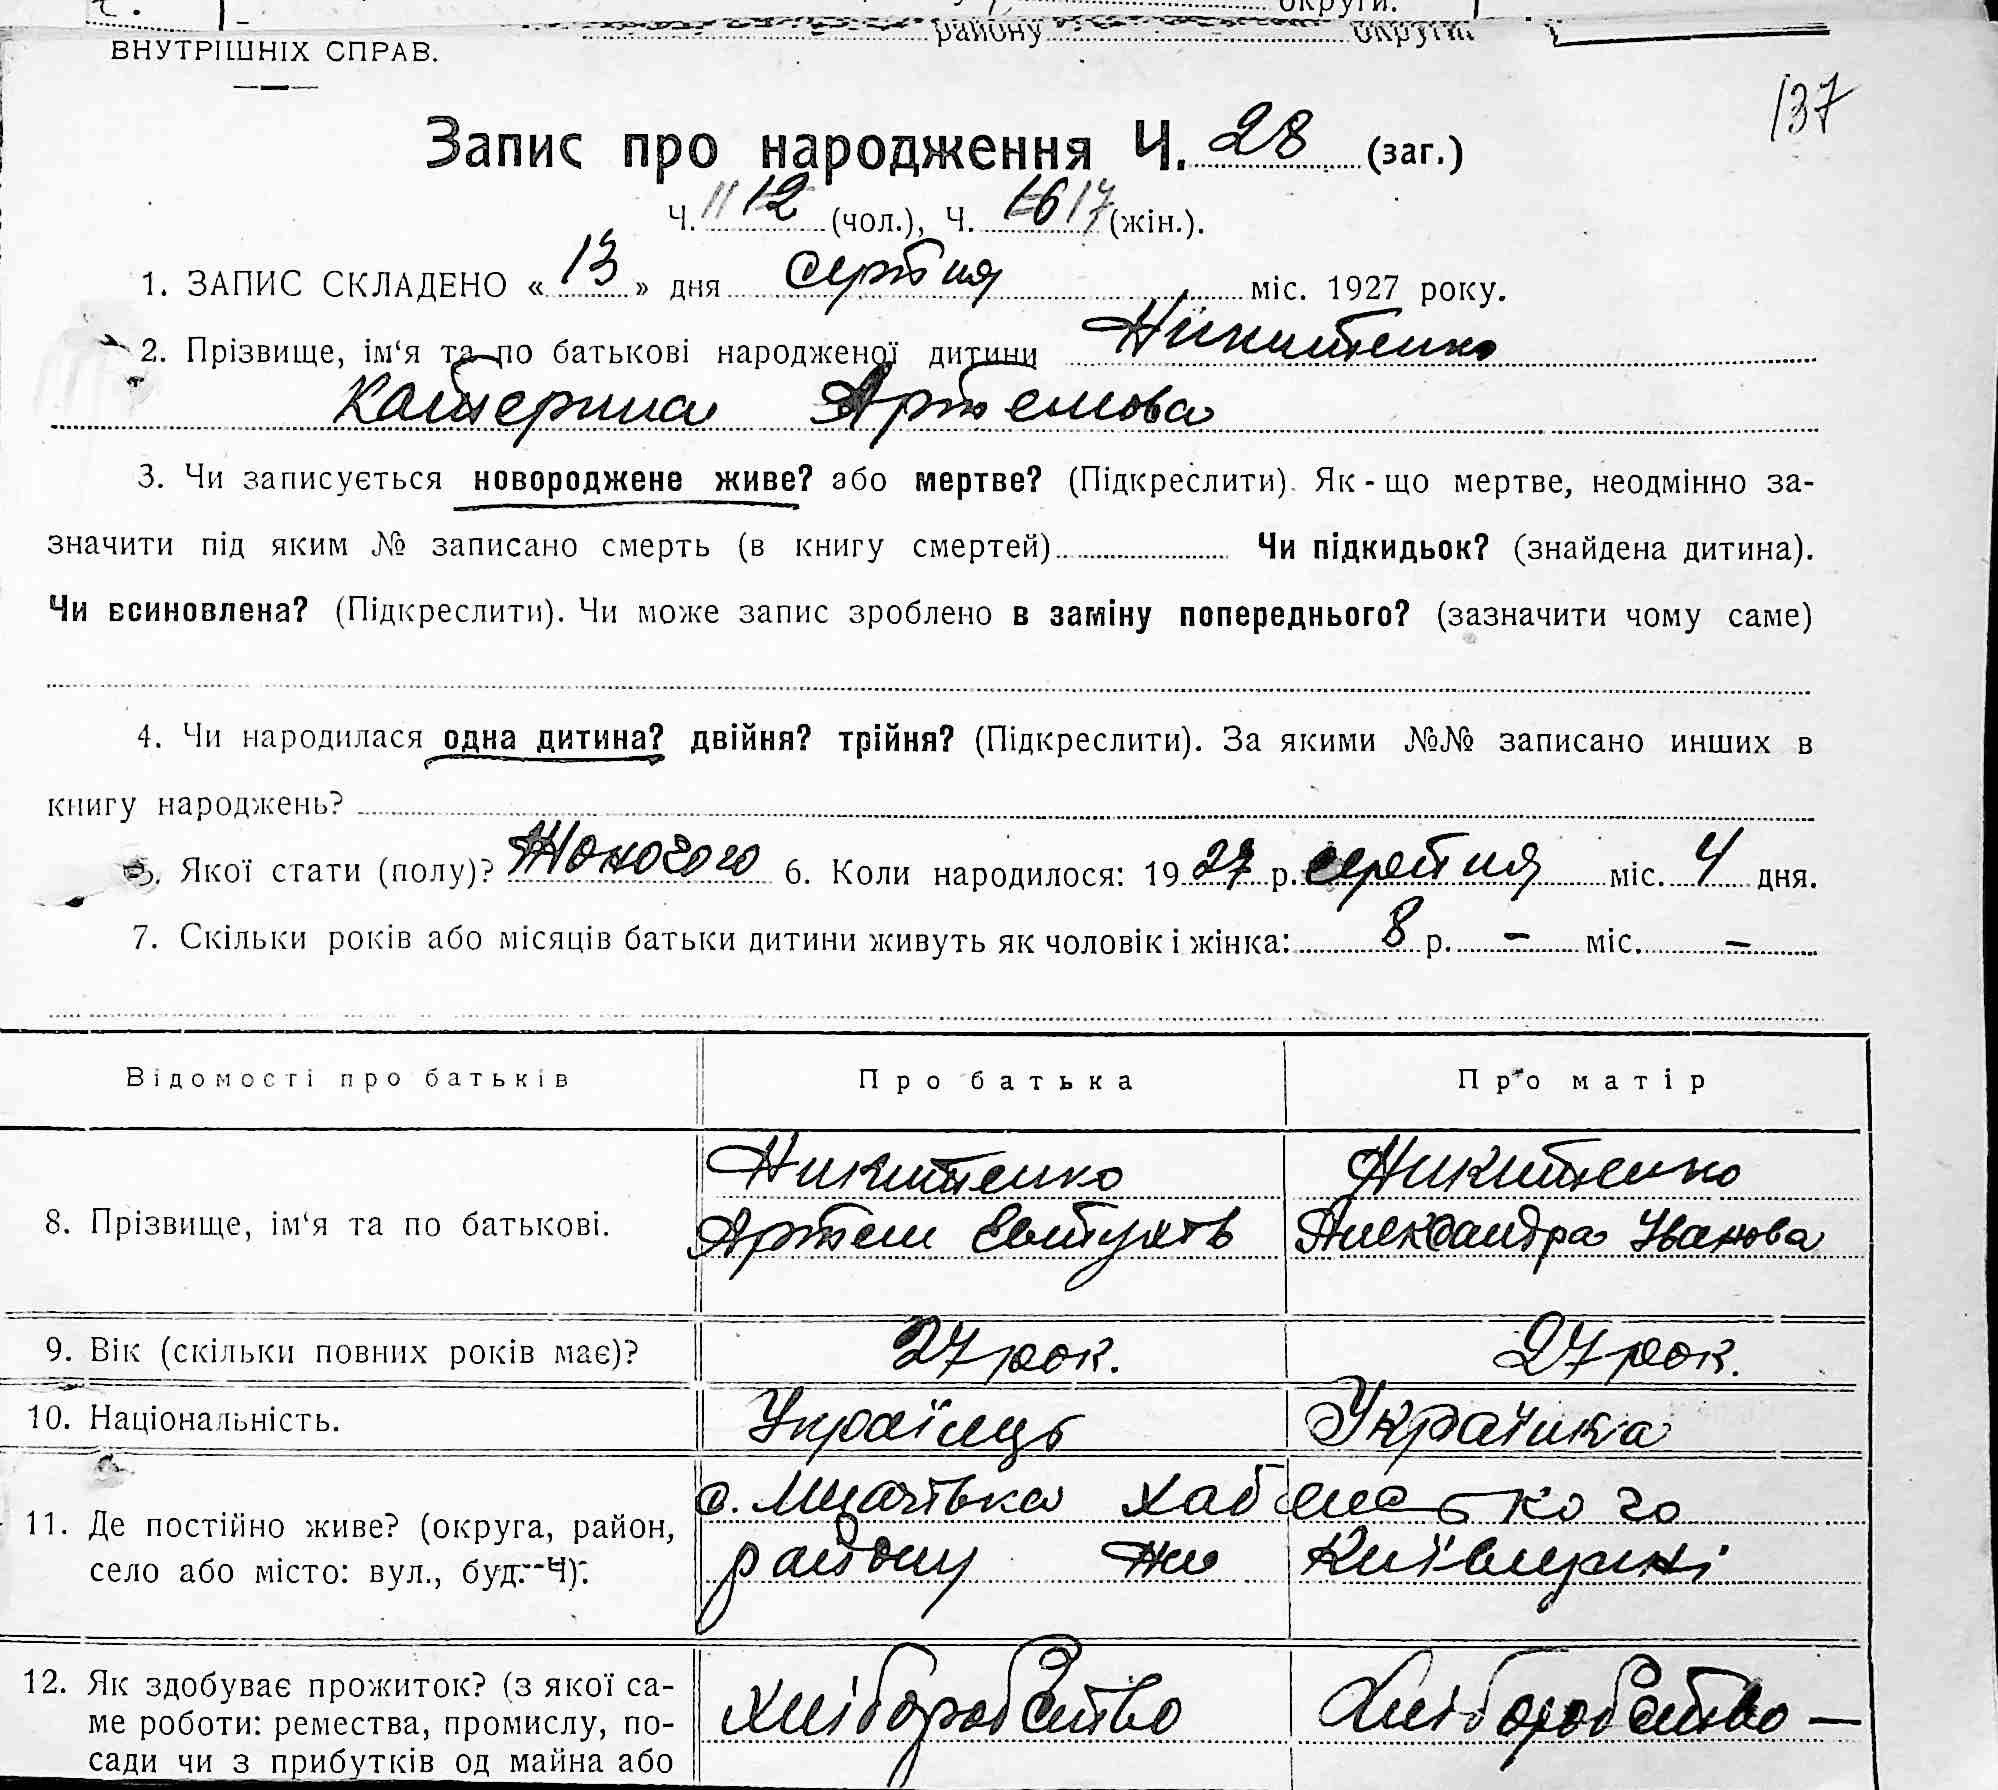 округи.
району округи
ВНУТРІШНІХ СПРАВ.
137
Запис про народження Ч. 28 (заг.)
Ч. 11 12 (чол.), Ч. 16 17 (жін.).
1. ЗАПИС СКЛАДЕНО « 13 » дня серпня міс. 1927 року.
2. Прізвище, ім‘я та по батькові народженої дитини Никитенко
Катерина Артемова
3. Чи записується новороджене живе? або мертве? (Підкреслити). Як-що мертве, неодмінно за-
значити під яким № записано смерть (в книгу смертей) Чи підкидьок? (знайдена дитина).
Чи всиновлена? (Підкреслити). Чи може запис зроблено в заміну попереднього? (зазначити чому саме)
4. Чи народилася одна дитина? двійня? трійня? (Підкреслити). За якими №№ записано инших в
книгу народжень?
5. Якої стати (полу)? Жоночого 6. Коли народилося: 1927 р. серпня міс. 4 дня.
7. Скільки років або місяців батьки дитини живуть як чоловік і жінка: 8 р. – міс. –
Відомості про батьків Про батька Про матір
Никитенко Никитенко
8. Прізвище, ім‘я та по батькові. Артем Александра Іванова
9. Вік (скільки повних років має)? 27 рок. 27 рок.
10. Національність. Українець Українка
с. Хаб
11. Де постійно живе? (округа, район,
району на Київщині
село або місто: вул., буд.–Ч):
12. Як здобуває прожиток? (з якої са-
ме роботи: ремества, промислу, по- хліборобство хліборобство –
сади чи з прибутків од майна або